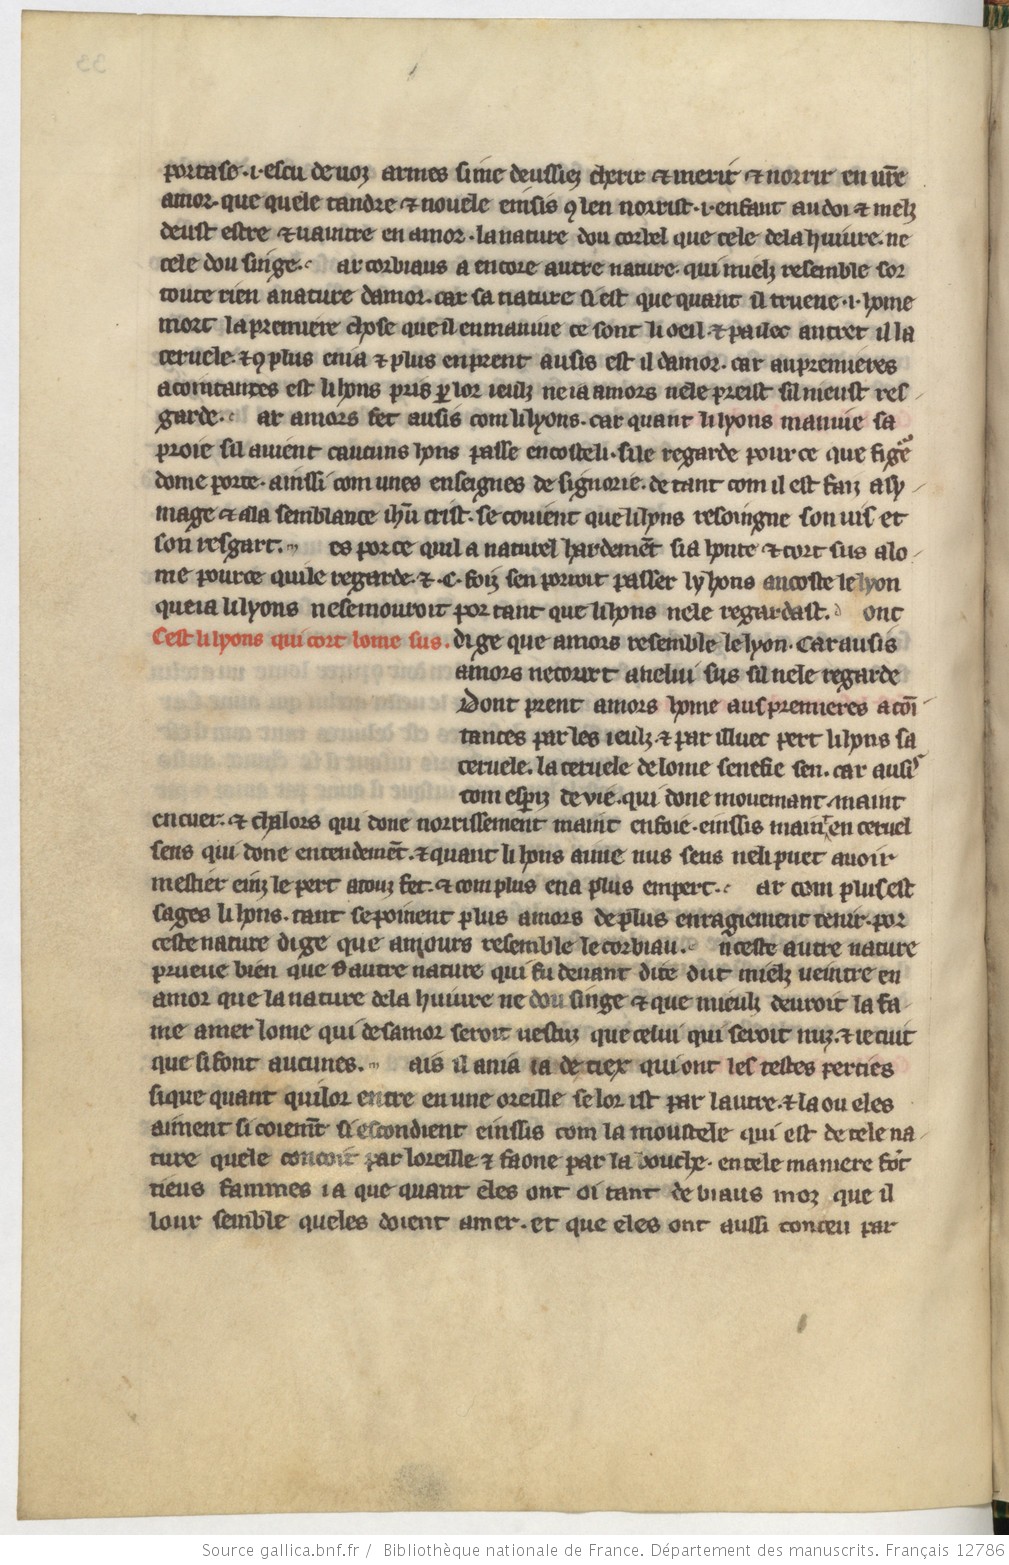 portasse .i. escu de voz armes si me deussiez cherir & merir & norrir en vr̃e
amor. que quele tandre & novele einsis 9 len norrist .i. enfant au doi & melz
deust estre & vaintre en amor. la nature dou corbel que cele de la huivre. ne
cele dou singe. ar corbiaus a encore autre nature. qui muelz resemble sor
toute rien a nature damor. car sa nature si est que quant il trueve .i. home
mort la premiere chose que il en manjue ce sont li oeil. & par iloc autret il la
cervele. & 9 plus en i a & plus en prent ausis est il damor. car au premieres
acointances est li hons pris p̱ lor ieulz ne ia amors nele preist sil n eust res
garde. ar amors fet ausis com li lyons. car quant li lyons manjue sa
proie sil avient caucuns hons passe encoste li. sile regarde pour ce que figẽ
dome porte. ainssi com unes enseignes de signorie. de tant com il est faiz a sy
mage & a la semblance ihũ crist. se covient que li lyns resoingne son vis et
son resgart. es por ce quil a naturel hardemẽt si a honte & cort sus a lo
me pource quile regarde. & .c. foiz sen porroit passer ly hons ancoste le lyon
que ia li lyons ne se mouvroit por tant que li hons nele regardast. ont
Cest li lyons qui cort lome sus. di ge que amors resemble le lyon. Car ausis
amors necourt a nelui sus sil nele regarde
Dont prent amors home aus premieres acoĩ
tances par les ieulz & par illuec pert li hons sa
cervele. la cervele de lome senefie sen. car ausis
com esperiz de vie. qui done movemant maint
en cuer. & chalors qui done norrissement maint en foie. einssis maint en cervel
sens qui done entendemẽt. & quant li hons aime nus sens neli puet avoir
mestier einz le pert a touz fet. & com plus en a plus em pert. ar com plus est
sages li hons. tant se poinent plus amors de plus enragiement tenir. por
ceste nature di ge que amours resemble le corbiau. n ceste autre nature
prueve bien que s autre nature qui fu devant dite dut mielz veintre en
amor que la nature dela huivre ne dou singe & que mieulz devroit la fa
me amer lome qui desamor seroit vestiz que celui qui seroit nuz. & ie cuit
que si font aucunes. ais il an i a ia de tiex qui ont les testes percies
sique quant quilor entre en une oreille se lor ist par lautre. & la ou eles
aiment si coiem̃t si escondient einssis com la moustele qui est de tele na
ture quele concoit par loreille & faone par la bouche. en tele maniere fõt
tieus fammes ia que quant eles ont oi tant de biaus moz que il
lour semble queles doient amer. et que eles ont aussi conceu par
Source gallica.bnf.fr / Bibliothèque nationale de France. Département des manuscrits. Français 12786